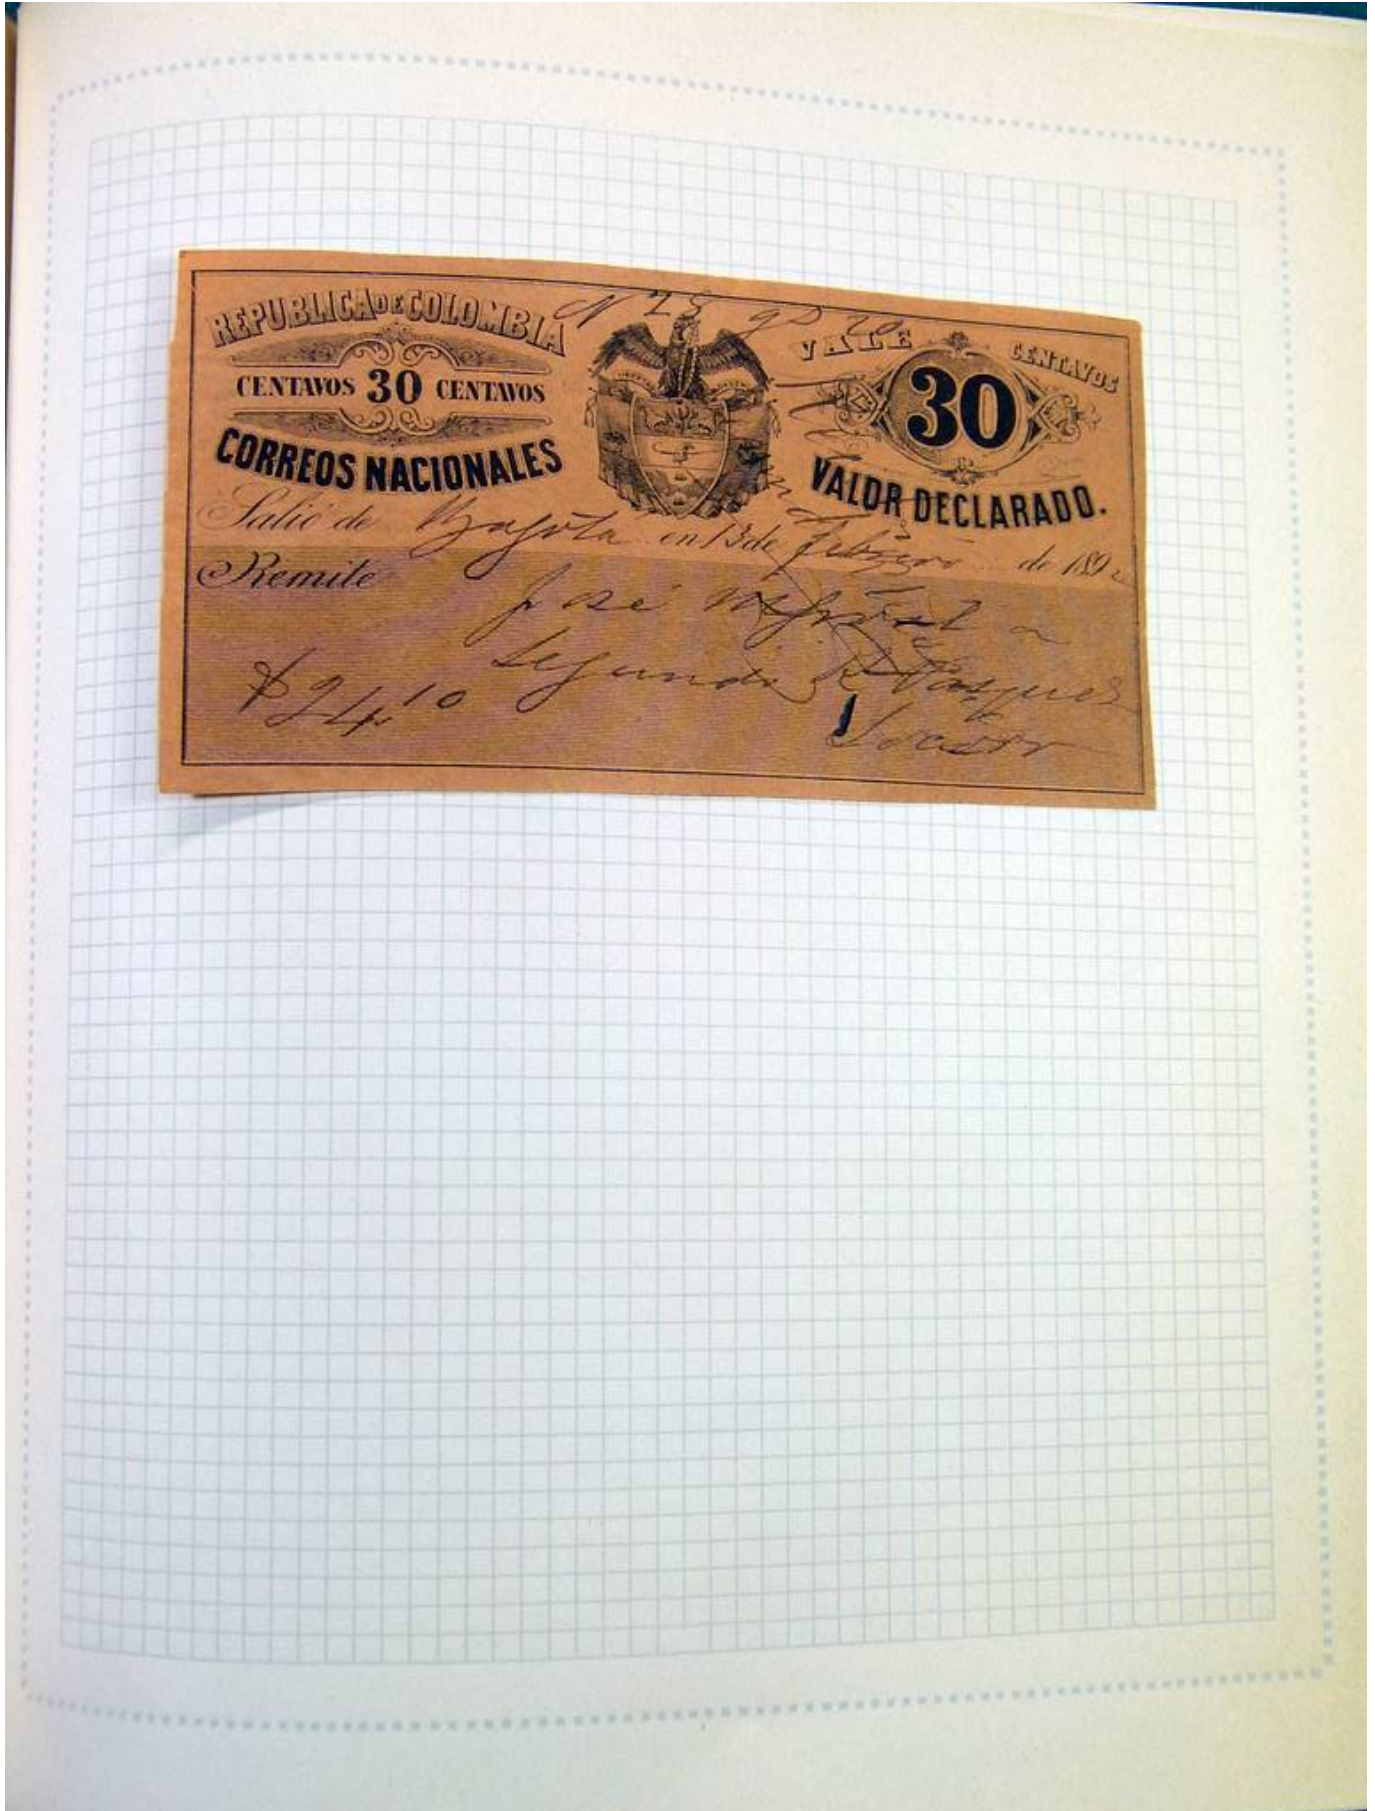 REPUBLICA DE COLOMBIA
CENTAVOS 30 CENTAVOS
CORREOS NACIONALES
VALE 30 CENTAVOS
VALOR DECLARADO.
Salió de Bogotá en 13 de Febrero de 189
Remite
José a
Segundo
$ 24,10